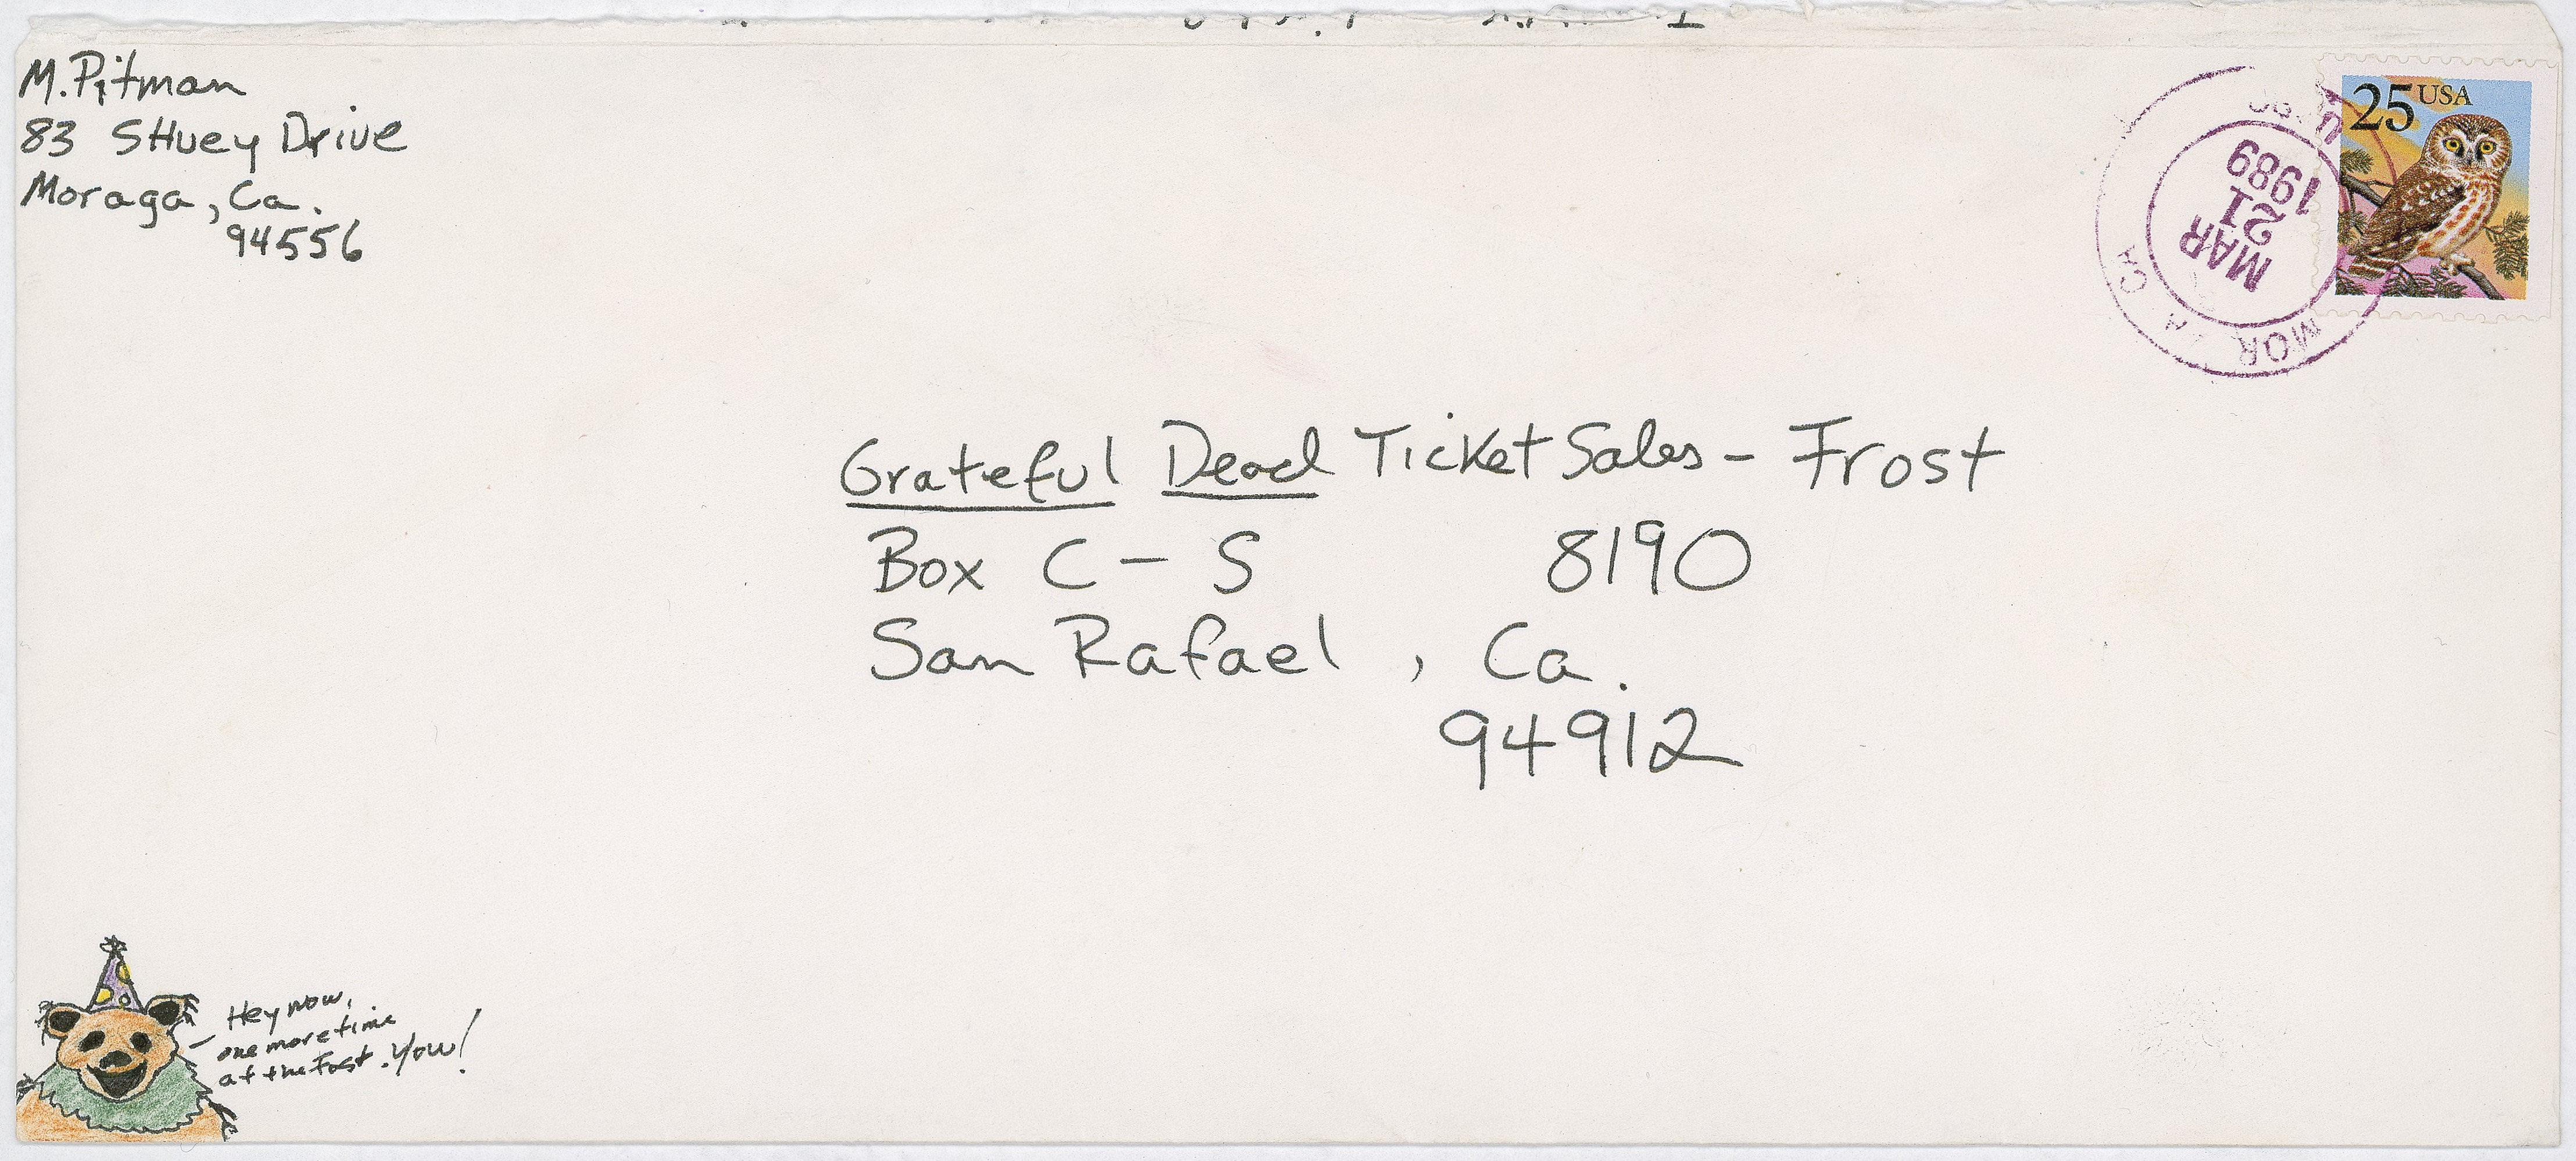 M. Pitman
83 SHuey Drive
Moraga, Ca.
94556
25 USA
MAR
21
1989
CA
Grateful Dead Ticket Sales - Frost
Box C - S 8190
San Rafael, Ca.
94912
Hey now,
one more time
at the Fost. Yow!